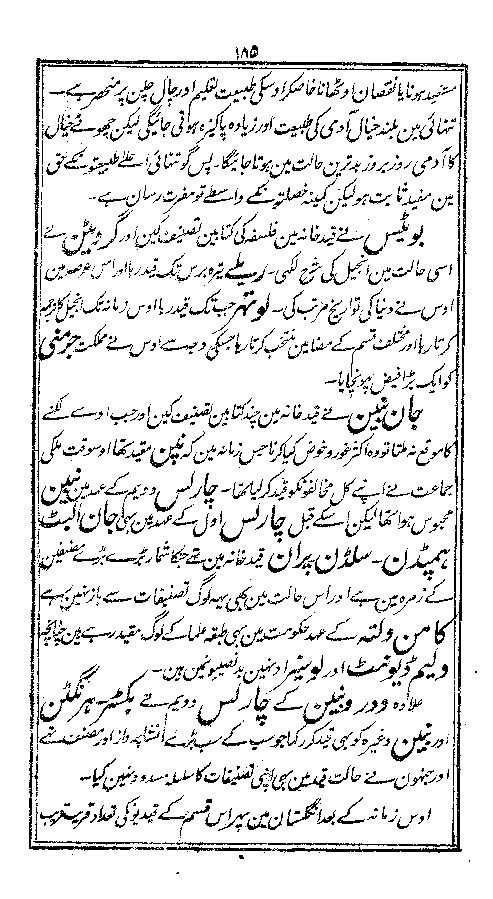 ۱۸۵
مستفید ہونا یا نقصان اوٹھانا خاصکر اوسکی طبیعت تعلیم اور چال چلن پر منحصر ہے۔
تنہائی مین بلند خیال آدمی کی طبیعت اور زیادہ پاکیزہ ہوتی جائیگی لیکن چھوٹے خیال
کا آدمی روز بروز بدترین حالت مین ہوتا جائیگا۔ پس گو تنہائی اعلے طبیعتونکے حق
مین مفید ثابت ہو لیکن کمینہ خصلتونکے واسطے تو مضرت رسان ہے۔
بوٹیس نے قید خانہ مین فلسفہ کی کتابین تصنیف کین اور گروٹیس نے
اسی حالت مین انجیل کی شرح لکھی۔ ریلے تیرہ برس تک قید رہا اور اس عرصہ مین
اوس نے دنیا کی تواریخ مرتب کی۔ لوتھر جب تک قید رہا اوس زمانہ تک انجیل کا ترجمہ
کرتا رہا اور مختلف قسم کے مضامین منتخب کرتا رہا جسکی وجہ سے اوس نے مملکت جرمنی
کو ایک بڑا فیض پہونچایا۔
جان بنین نے قید خانہ مین چند کتابین تصنیف کین اور جب اوسے لکھنے
کا موقع نہ ملتا تو وہ اکثر غور و خوض کیا کرتا جس زمانہ مین کہ بنین مقید تھا اوسوقت ملکی
جماعت نے اپنے کل مخالفونکو قید کر لیا تھا۔ چارلس دویم کے عہد مین بنین
محبوس ہوا تھا لیکن اسکے قبل چارلس اول کے عہد مین بھی جان الیٹ
ہمپڈن۔ سلڈن پران قید خانہ مین تھے جنکا شمار بڑے بڑے مصنفین
کے زمرہ مین ہے اور اس حالت مین بھی یہہ لوگ تصنیفات سے باز نہین رہے
کامن ولتھ کے عہد حکومت مین بھی طبقہ علما کے لوگ مقید رہے ہین چنانچہ
ولیم ڈیونٹ اور لوسینر اونہین بدنصیبونمین ہین۔
علاوہ وور و بنین کے چارلس دویم نے بکسٹر۔ ہرنگٹن
اور بنین وغیرہ کو بھی قید کر رکھا جو سب کے سب بڑے انشا پرداز اور مصنف تھے
اور جنہون نے حالت قید مین بھی اپنی تصنیفات کا سلسلہ مسدود نہین کیا۔
اوس زمانہ کے بعد انگلستان مین پھر اس قسم کے قیدیونکی تعداد قریب قریب